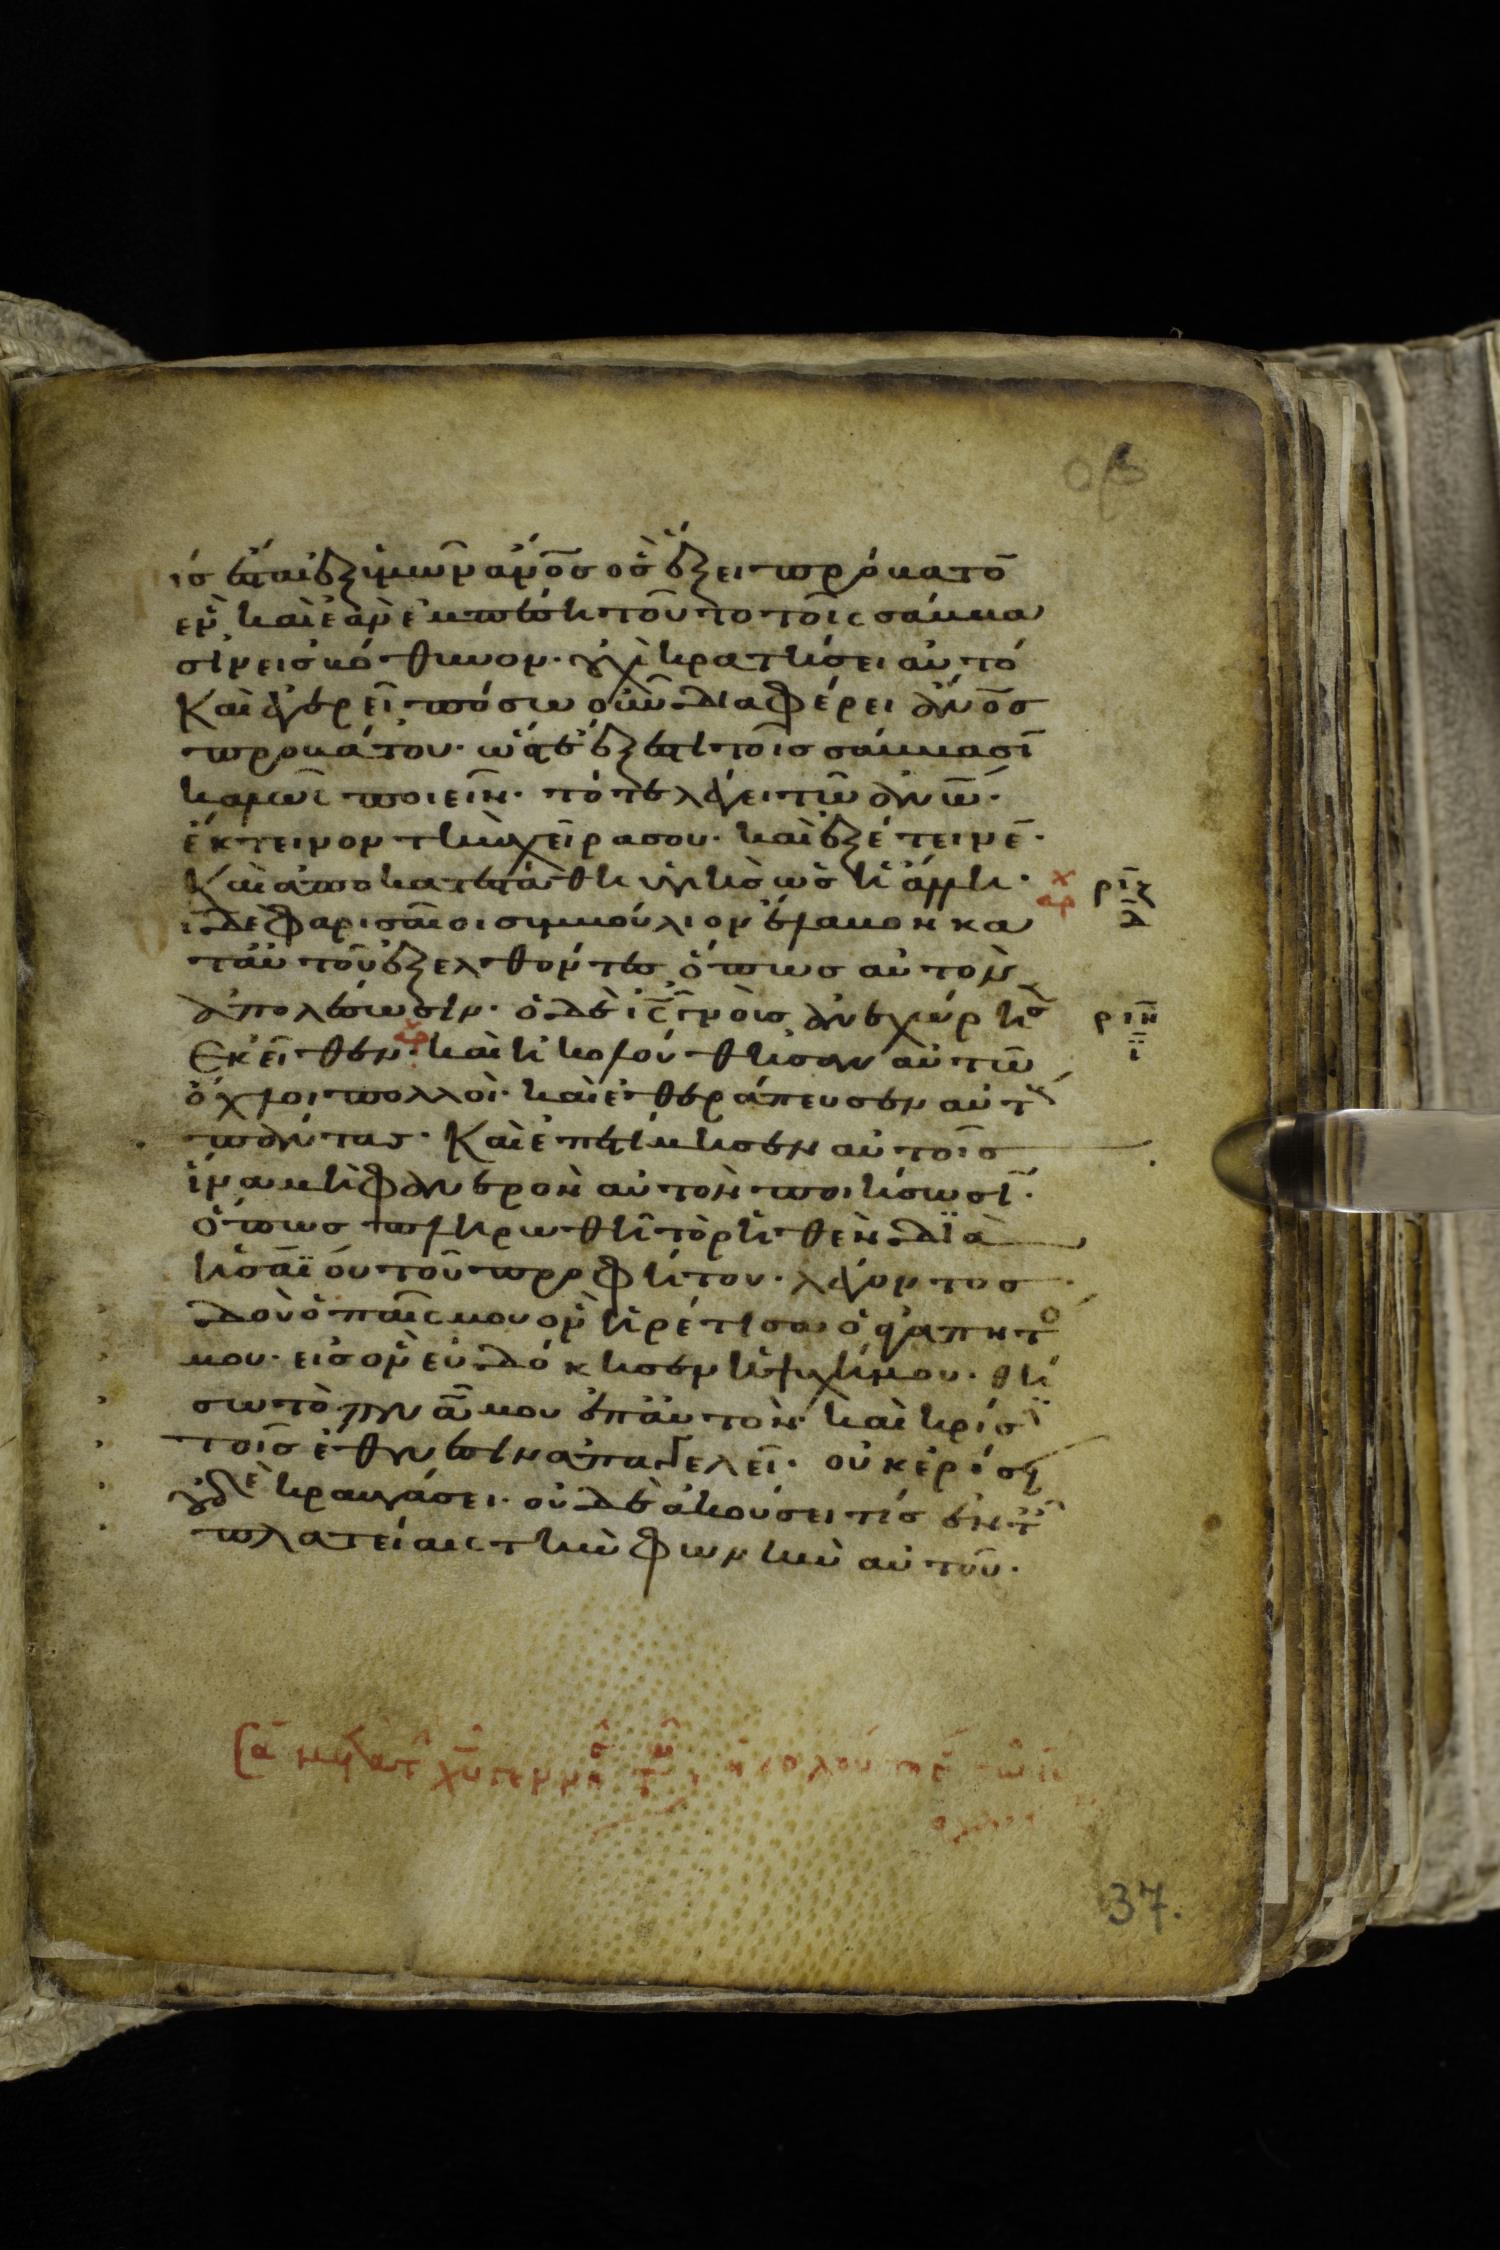 οβ
ίσ ἔσται ἐξ ὑμῶν ἀνοσ ὃσ ἕξει προβατο
εν καὶ ἐὰν ἐμπέση τοῦτο τοῖς σάββα
σιν εἰσ βόθυνον· οὐχὶ κρατήσει αὐτὸ
Καὶ ἐγερεῖ πόσω οὖν διαφέρει ἀνοσ
προβάτου· ὥστε ἔξεστι τοῖσ σάββασῖ
καλῶς ποιεῖν· τότε λέγει τῶ ἀνω·
ἔκτεινον τὴν χεῖρα σου· καὶ ἐξέτεινε·
Καὶ ἀποκατεστάθη ὑγιὴσ ὡσ ἡ ἄλλη·
ι δὲ φαρισαῖοι συμβούλιον ἔλαβον κα
τ αὐτοῦ ἐξελθόντεσ ὅπωσ αὐτον
ἀπολέσωσιν· ὁ δὲ ις γνοὺσ ἀνεχώρησ
Εκεῖθεν· καὶ ἠκολούθησαν αὐτῶ
ὄχλοι πολλοὶ· καὶ ἐθεράπευσεν αὐτ
πάντας· Καὶ ἐπετίμησεν αὐτοῖσ
ἵνα μὴ φανερὸν αὐτὸν ποιήσωσῖ·
Ὅπωσ πληρωθῆ τὸ ρηθὲν διὰ
ἡσαΐου τοῦ προφήτου· λέγοντοσ
δοὺ ὁ παῖς μου ὃν ἡρέτισα ὁ ἀγαπητο
μου· εἰσ ὃν εὐδόκησεν ἡ ψυχή μου· θή
σω τὸ πνα μου ἐπ αὐτὸν· καὶ κρίσ
τοῖσ ἔθνεσιν ἀπαγγελεῖ· οὐκ ἐρίσει
οὐδὲ κραυγάσει· οὐδὲ ἀκούσει τισ ἐν τ
πλατείαις τὴν φωνὴν αὐτοῦ·
ριζ
δ
ριη
ι
37.